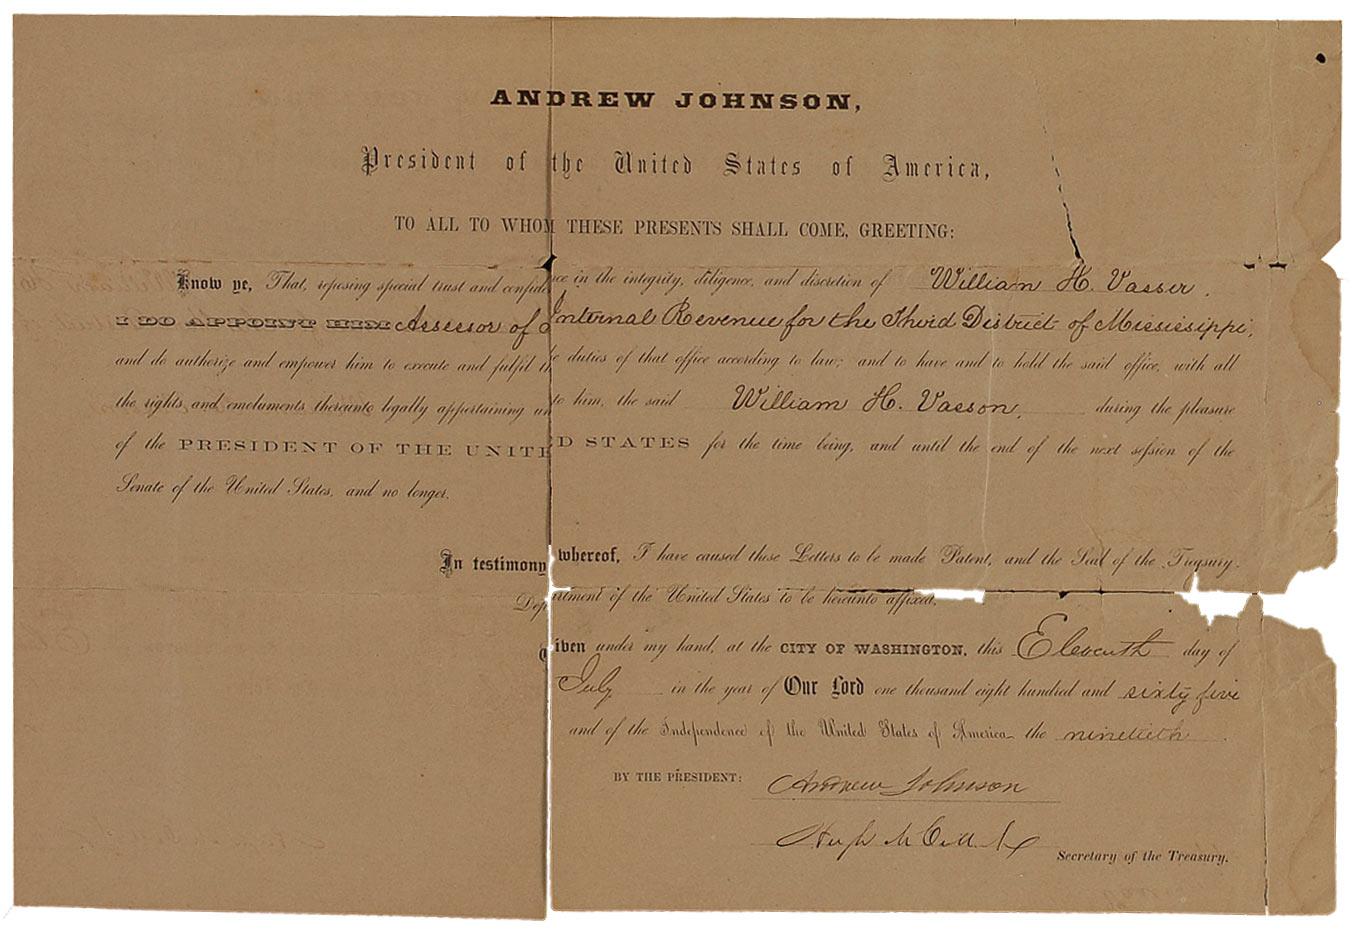 ANDREW JOHNSON,
President of the United States of America,
TO ALL TO WHOM THESE PRESENTS SHALL COME, GREETING:
Know ye, That, reposing special trust and confidence in the integrity, diligence, and discretion of William H. Vasser.
I DO APPOINT HIM Assessor of Internal Revenue for the Third District of Mississippi,
and do authorize and empower him to execute and fulfil the duties of that office according to law; and to have and to hold the said office, with all
the rights and emoluments thereunto legally appertaining unto him, the said William H. Vasson, during the pleasure
of the PRESIDENT OF THE UNITED STATES for the time being, and until the end of the next session of the
Senate of the United States, and no longer.
In testimony whereof, I have caused these Letters to be made Patent, and the Seal of the Treasury
Department of the United States to be hereunto affixed.
Given under my hand, at the CITY OF WASHINGTON, this Eleventh day of
July in the year of Our Lord one thousand eight hundred and sixty five
and of the Independence of the United States of America the ninetieth.
BY THE PRESIDENT: Andrew Johnson
Hugh McCulloch
Secretary of the Treasury.